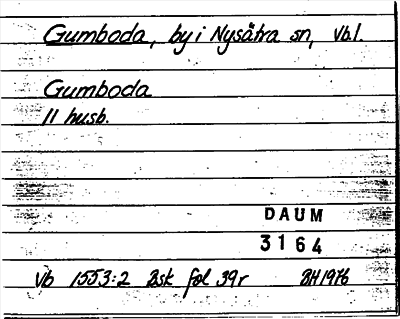 Gumboda, by i Nysätra sn, Vbl.
Gumboda
11 husb.
DAUM
3164
Vb 1553:2 Bsk fol 39r BH1976